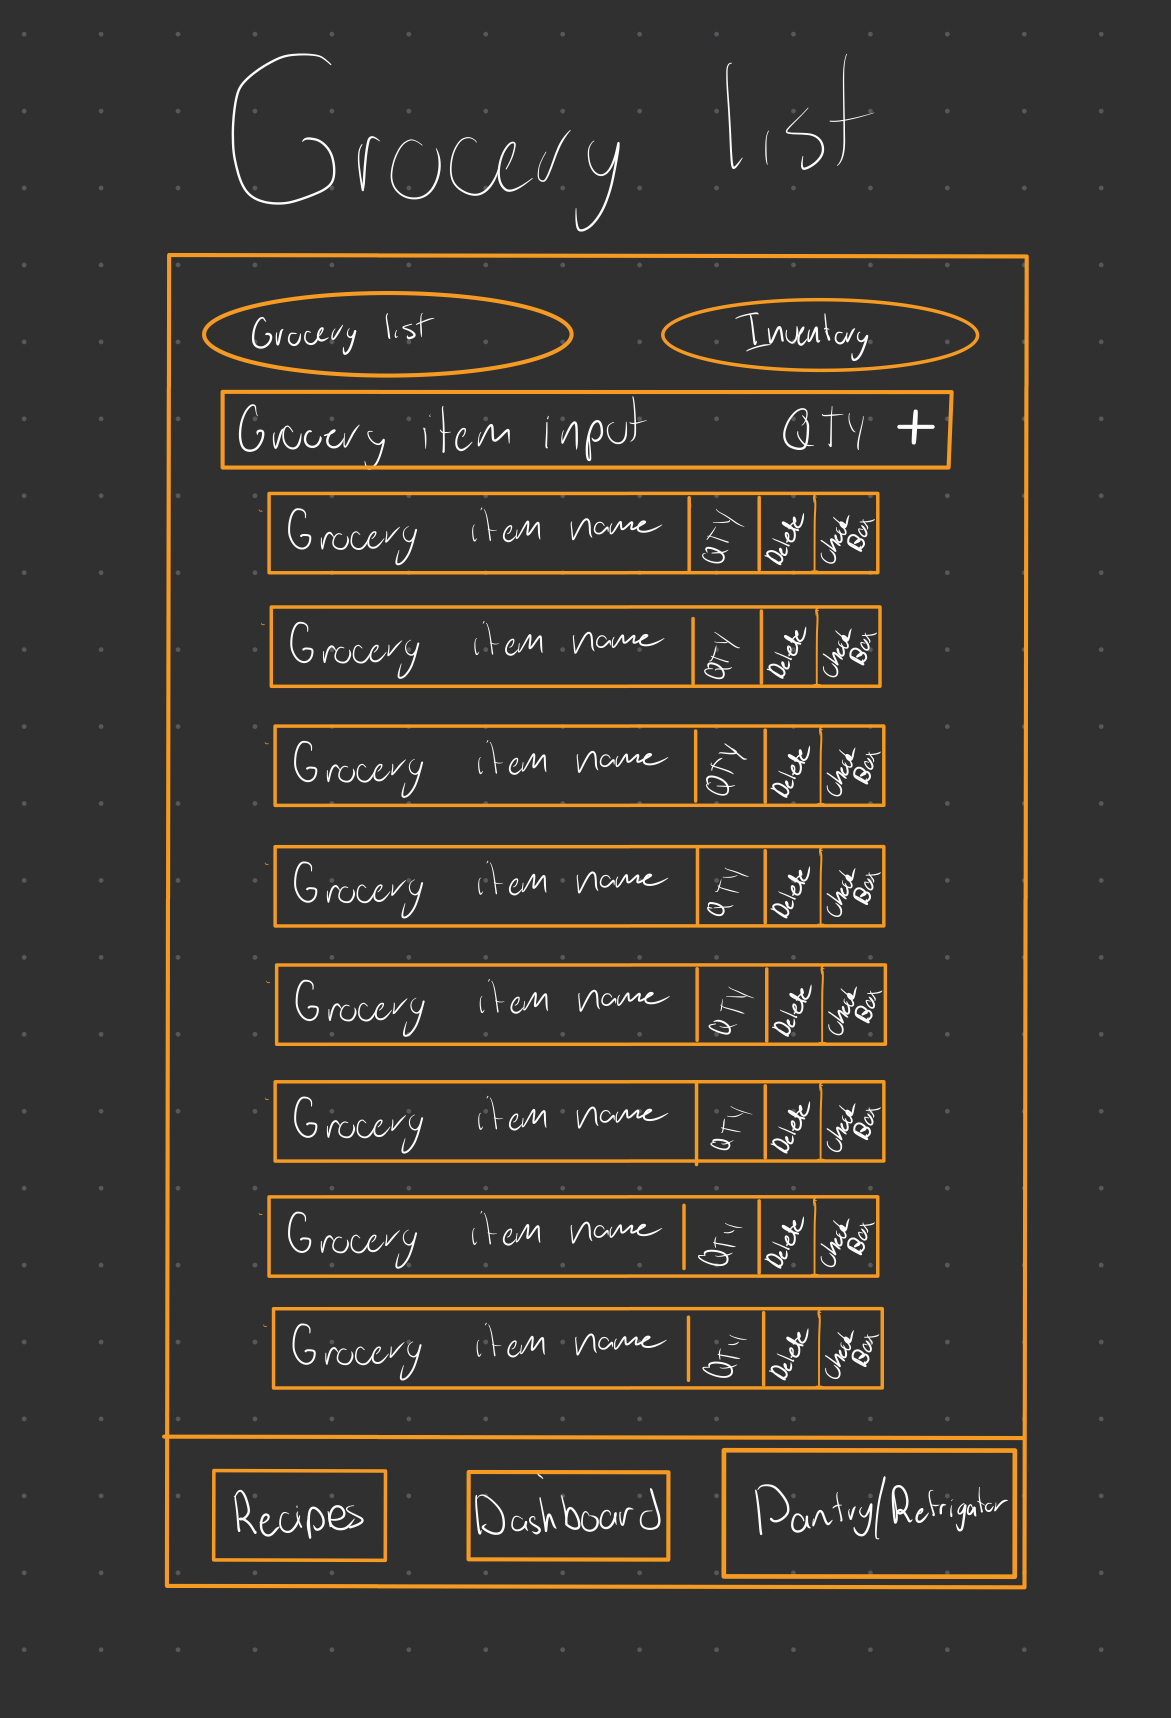 Grocery list
Grocery list Inventory
Grocery item input QTY +
Grocery item name QTY Delete Check Box
Grocery item name QTY Delete Check Box
Grocery item name QTY Delete Check Box
Grocery item name QTY Delete Check Box
Grocery item name QTY Delete Check Box
Grocery item name QTY Delete Check Box
Grocery item name QTY Delete Check Box
Grocery item name QTY Delete Check Box
Recipes Dashboard Pantry/Refrigator